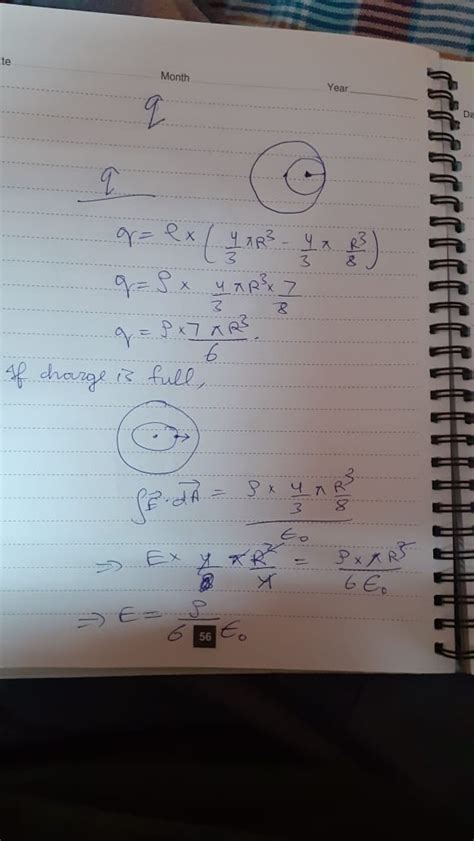 te Month Year
Da
q
q
q = ρ × ( 4/3 πR³ - 4/3 π R³/8 )
q = ρ × 4/3 πR³ × 7/8
q = ρ × 7πR³/6.
If charge is full,
∫E⃗·dA⃗ = ρ × 4/3 π R³/8 / ε₀
⇒ E × πR² = ρ × πR³/6ε₀
⇒ E = ρ/6 ε₀
56